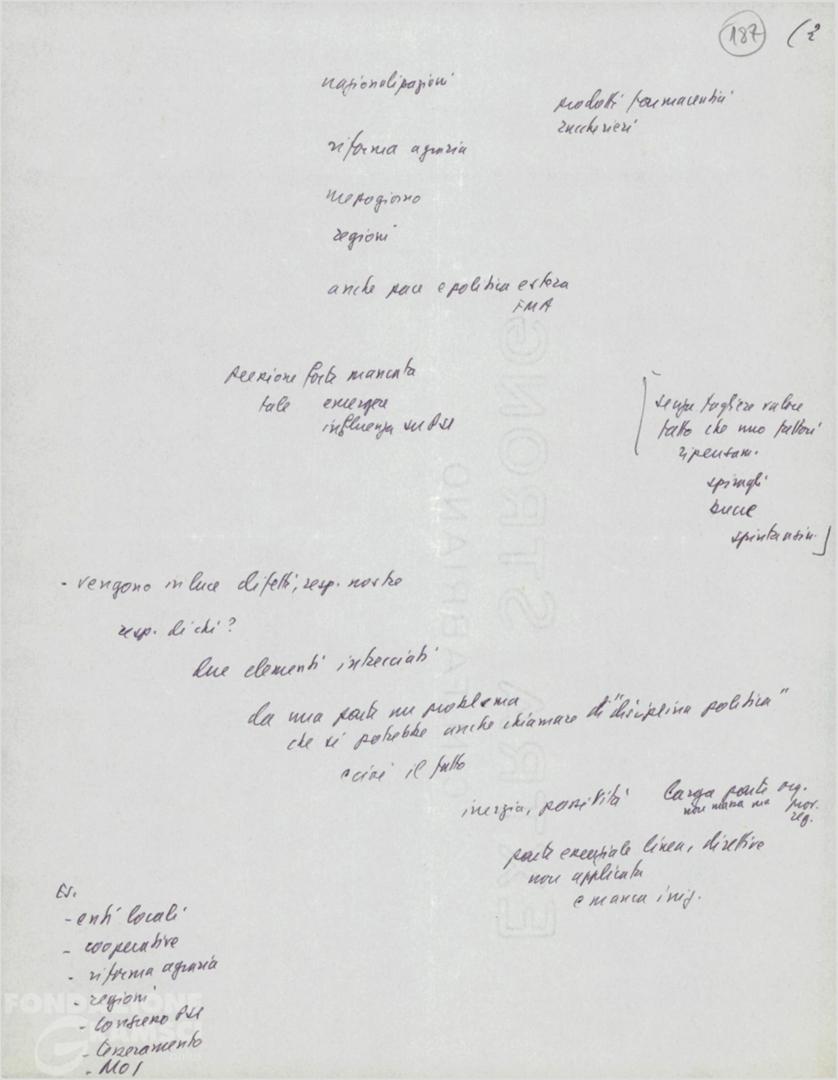 187 (2
nazionalizzazioni
prodotti farmaceutici
zuccherieri
riforma agraria
mezzogiorno
regioni
anche pace e politica estera
FMA
pressione forte mancata
tale emergea
influenza su PSI
[senza togliere valore
fatto che uno fattori
ripensam.
spiragli
brecce
spintansin.]
- vengono in luce difetti, resp. nostre
resp. di chi?
due elementi intrecciati
da una parte un problema
che si potrebbe anche chiamare di "disciplina politica"
cioè il fatto
inerzia, passività larga parte org.
non massa ma prov.
reg.
parte essenziale linea, direttive
non applicata
e manca iniz.
Es.
- enti locali
- cooperative
- riforma agraria
- regioni
- congresso PSI
- tesseramento
- MOI
FONDAZIONE
GRAMSCI
EXTRA STRONG
FABRIANO